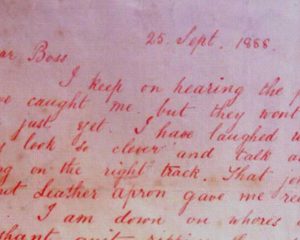 25. Sept. 1888.
ar Boss
I keep on hearing the p
ve caught me but they wont
just yet. I have laughed w
y look so clever and talk a
ng on the right track. That jo
ut Leather apron gave me re
I am down on whores
shant quit ripping